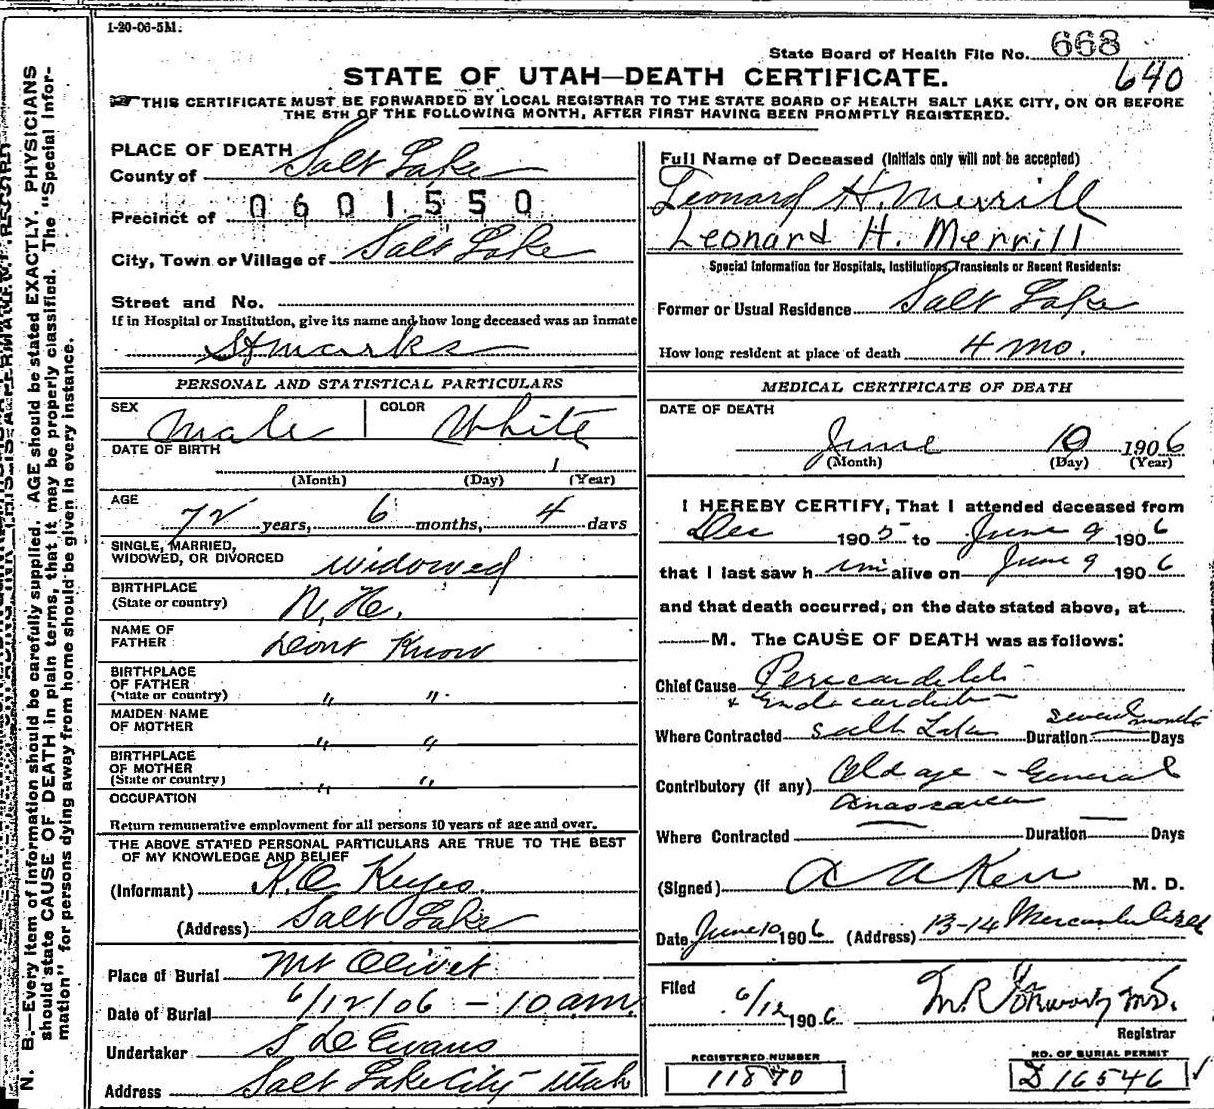 1-20-06-5M.
State Board of Health File No. 668
640
STATE OF UTAH—DEATH CERTIFICATE.
THIS CERTIFICATE MUST BE FORWARDED BY LOCAL REGISTRAR TO THE STATE BOARD OF HEALTH SALT LAKE CITY, ON OR BEFORE
THE 5TH OF THE FOLLOWING MONTH, AFTER FIRST HAVING BEEN PROMPTLY REGISTERED.
PLACE OF DEATH
County of Salt Lake
Precinct of 0601550
City, Town or Village of Salt Lake
Street and No.
If in Hospital or Institution, give its name and how long deceased was an inmate
St marks
PERSONAL AND STATISTICAL PARTICULARS
SEX Male COLOR White
DATE OF BIRTH 1
(Month) (Day) (Year)
AGE 72 years, 6 months, 4 days
SINGLE, MARRIED,
WIDOWED, OR DIVORCED widowed
BIRTHPLACE
(State or country) N. H.
NAME OF
FATHER Dont Know
BIRTHPLACE
OF FATHER
(State or country) " "
MAIDEN NAME
OF MOTHER " "
BIRTHPLACE
OF MOTHER
(State or country) " "
OCCUPATION
Return remunerative employment for all persons 10 years of age and over.
THE ABOVE STATED PERSONAL PARTICULARS ARE TRUE TO THE BEST
OF MY KNOWLEDGE AND BELIEF
(Informant) Keyes
(Address) Salt Lake
Place of Burial Mt Olivet
Date of Burial 6/12/06 - 10 am
Undertaker S D Evans
Address Salt Lake City Utah
Full Name of Deceased (Initials only will not be accepted)
Leonard H. Merrill
Leonard H. Merrill
Special Information for Hospitals, Institutions, Transients or Recent Residents:
Former or Usual Residence Salt Lake
How long resident at place of death 4 mo.
MEDICAL CERTIFICATE OF DEATH
DATE OF DEATH
June 10 1906
(Month) (Day) (Year)
I HEREBY CERTIFY, That I attended deceased from
Dec 1905 to June 9 1906
that I last saw him alive on June 9 1906
and that death occurred, on the date stated above, at
M. The CAUSE OF DEATH was as follows:
Chief Cause Pericarditis
+ Endocarditis
Where Contracted Salt Lake Duration several months Days
Contributory (if any) Old age - General
anasarca
Where Contracted — Duration — Days
(Signed) A A Kerr M. D.
Date June 10 1906 (Address) 13-14 Mercantile
Filed 6/12 1906 M.R. M.D.
Registrar
REGISTERED NUMBER
11870
NO. OF BURIAL PERMIT
D 16546
N. B.—Every item of information should be carefully supplied. AGE should be stated EXACTLY. PHYSICIANS
should state CAUSE OF DEATH in plain terms, that it may be properly classified. The "Special Infor-
mation" for persons dying away from home should be given in every instance.